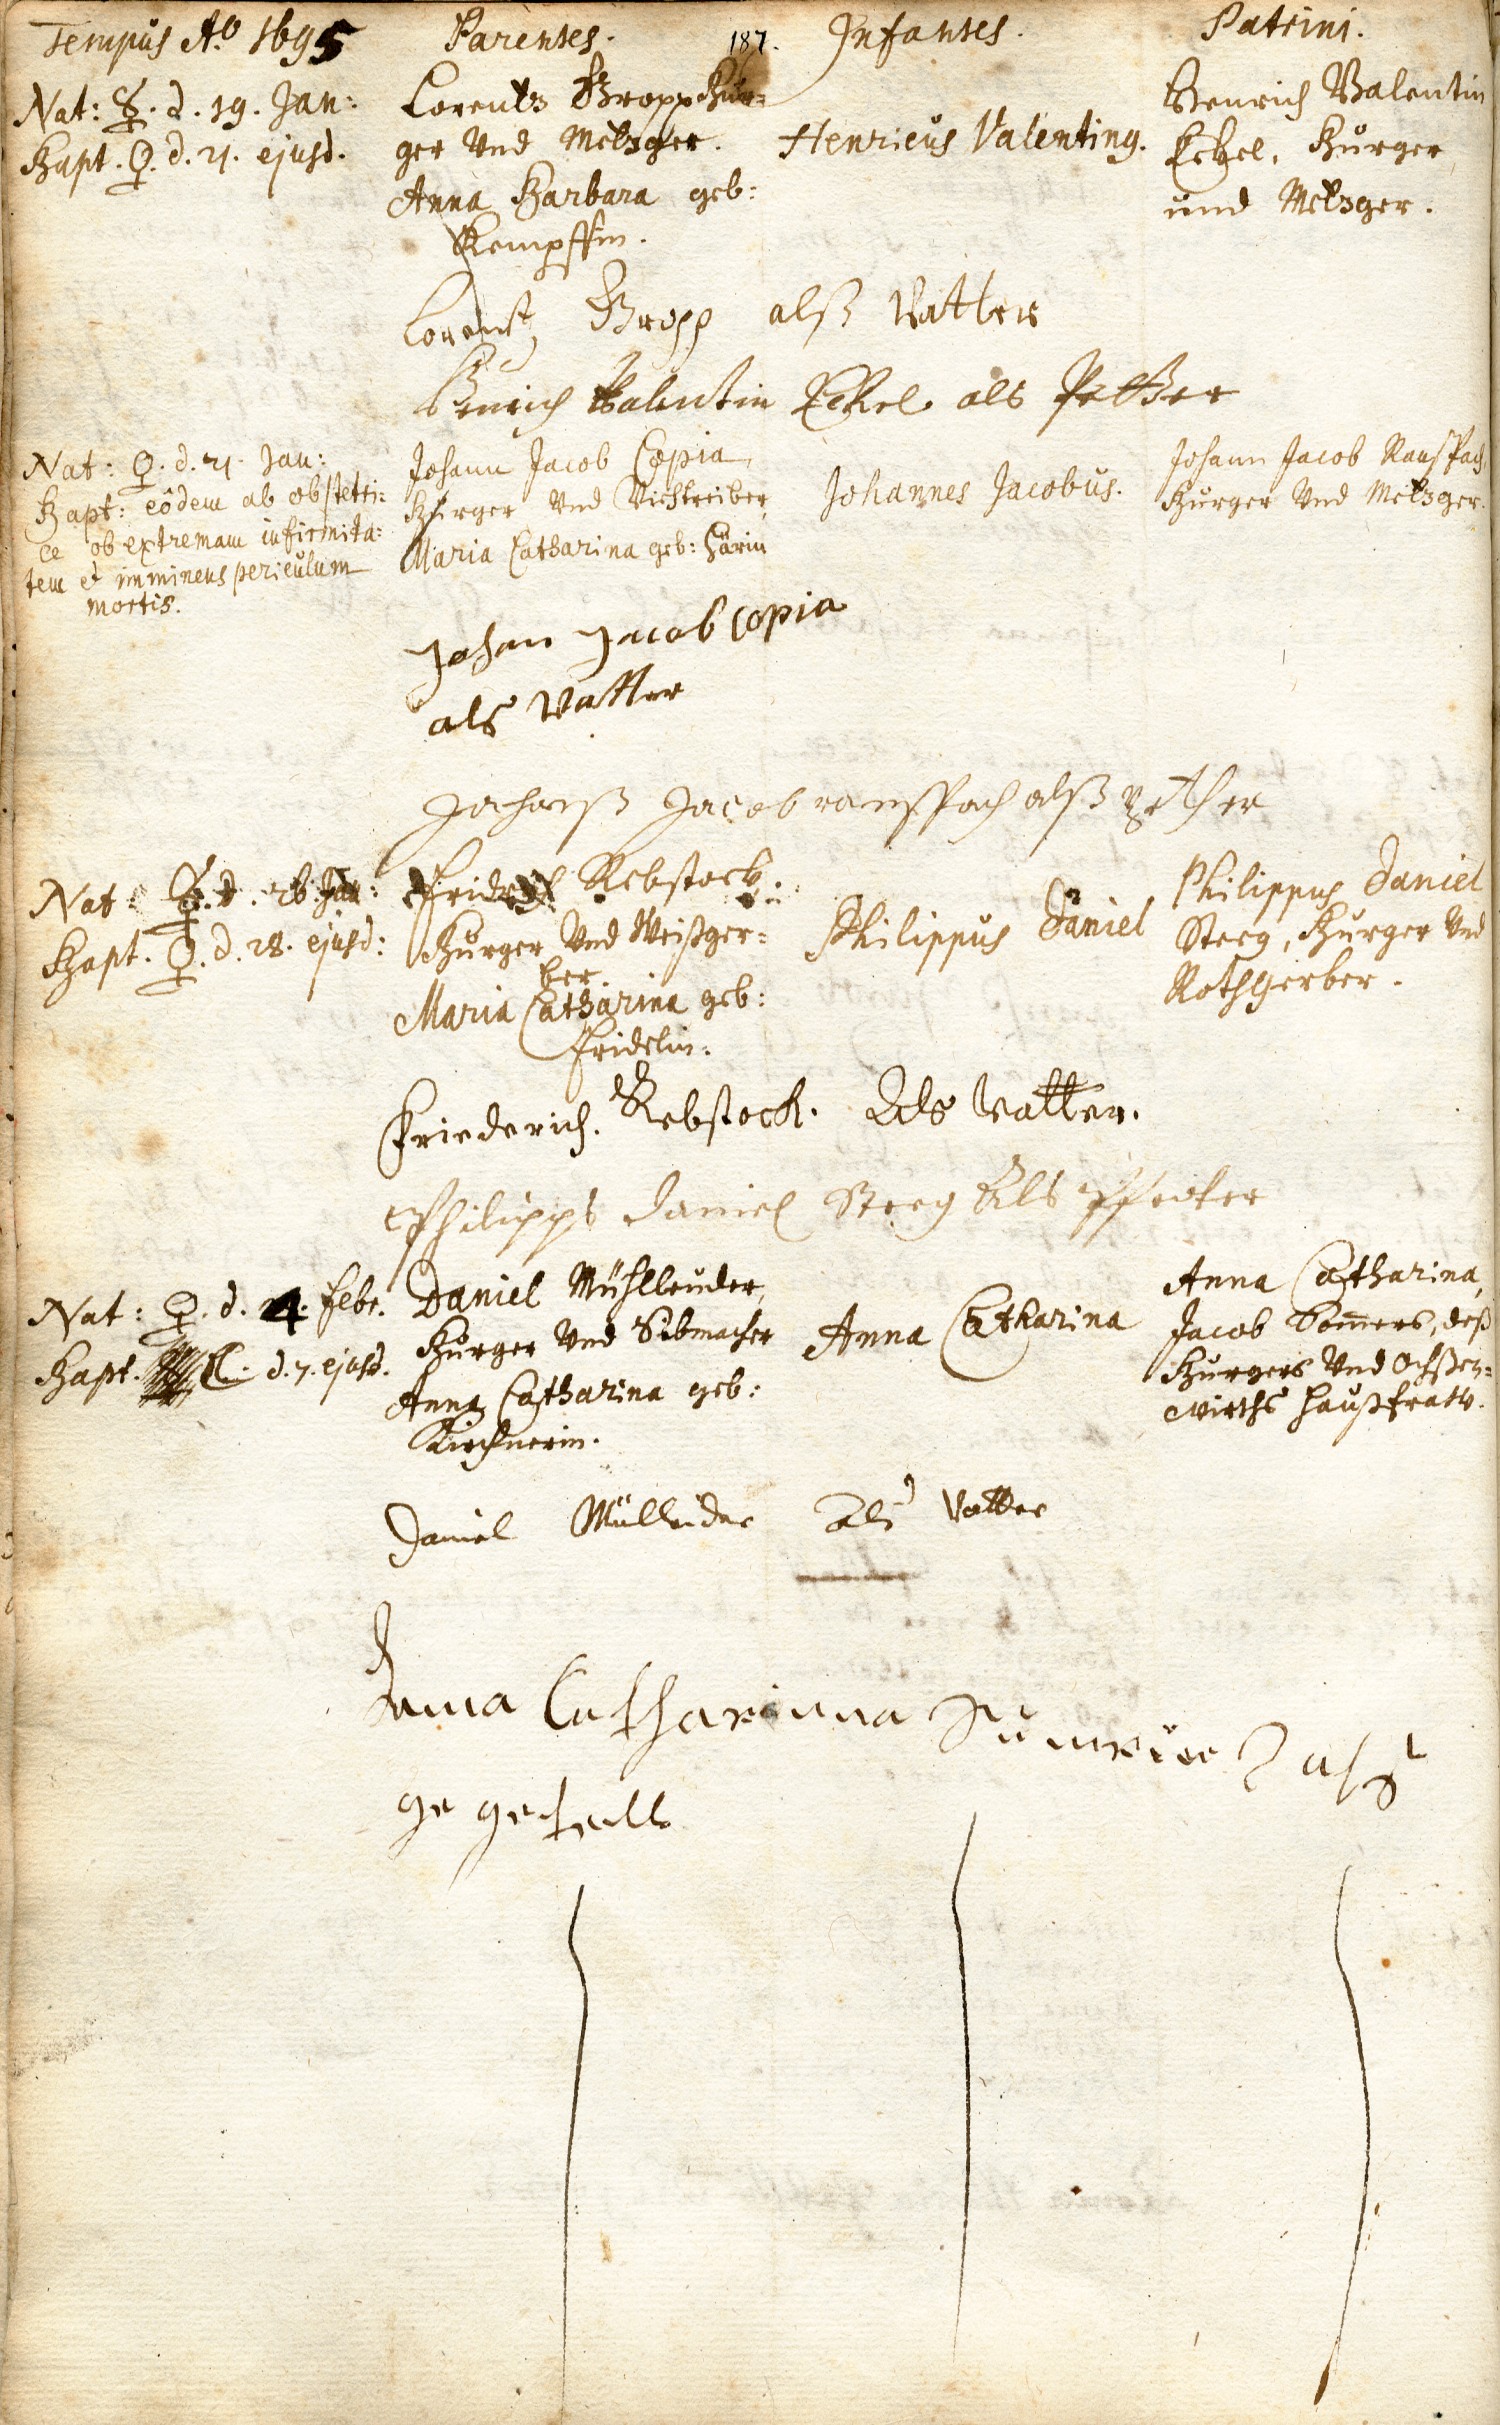 Tempus Aº 1695 Parentes. 187. Infantes. Patrini.
Nat: ☿. d. 19. Jan:
Bapt. ♀. d. 21. ejusd.
Lorentz Gropp Bur=
ger Vnd Metzger.
Anna Barbara geb:
Kempffin.
Henricus Valenting.
Henrich Valentin
Eckel, Burger
und Metzger.
Lorentz Gropp alß Vatter
Henrich Valentin Eckel als Petter
Nat: ♀. d. 21. Jan:
Bapt: eôdem ab obstetri=
ce ob extremam infirmita=
tem et imminens periculum
mortis.
Johann Jacob Copia,
Burger Vnd Viehtreiber
Maria Catharina geb: Härin
Johannes Jacobus.
Johann Jacob Ranspach,
Burger Vnd Metzger.
Johan Jacob Copia
als Vatter
Johanß Jacob ranspach alß Pether
Nat: ☿. d. 26. Jan:
Bapt. ♀. d. 28. ejusd:
Fridrich Rebstock.
Burger Vnd Weißger=
ber.
Maria Catharina geb:
Fridelin.
Philippus Daniel
Philippus Daniel
Steeg, Burger Vnd
Rothgerber.
Friederich. Rebstock. Als Vatter.
Philipps Daniel Steeg Als Pfetter
Nat: ♀. d. 4. Febr.
Bapt. ☾. d. 7. ejusd.
Daniel Mühlleuder,
Burger Vnd Sibmacher
Anna Catharina geb:
Kirchnerin.
Anna Catharina
Anna Catharina,
Jacob Somers, deß
Burgers Vnd Ochßen=
wirths Haußfraw.
Daniel Mülleider Als Vatter
Anna Catharinna alß